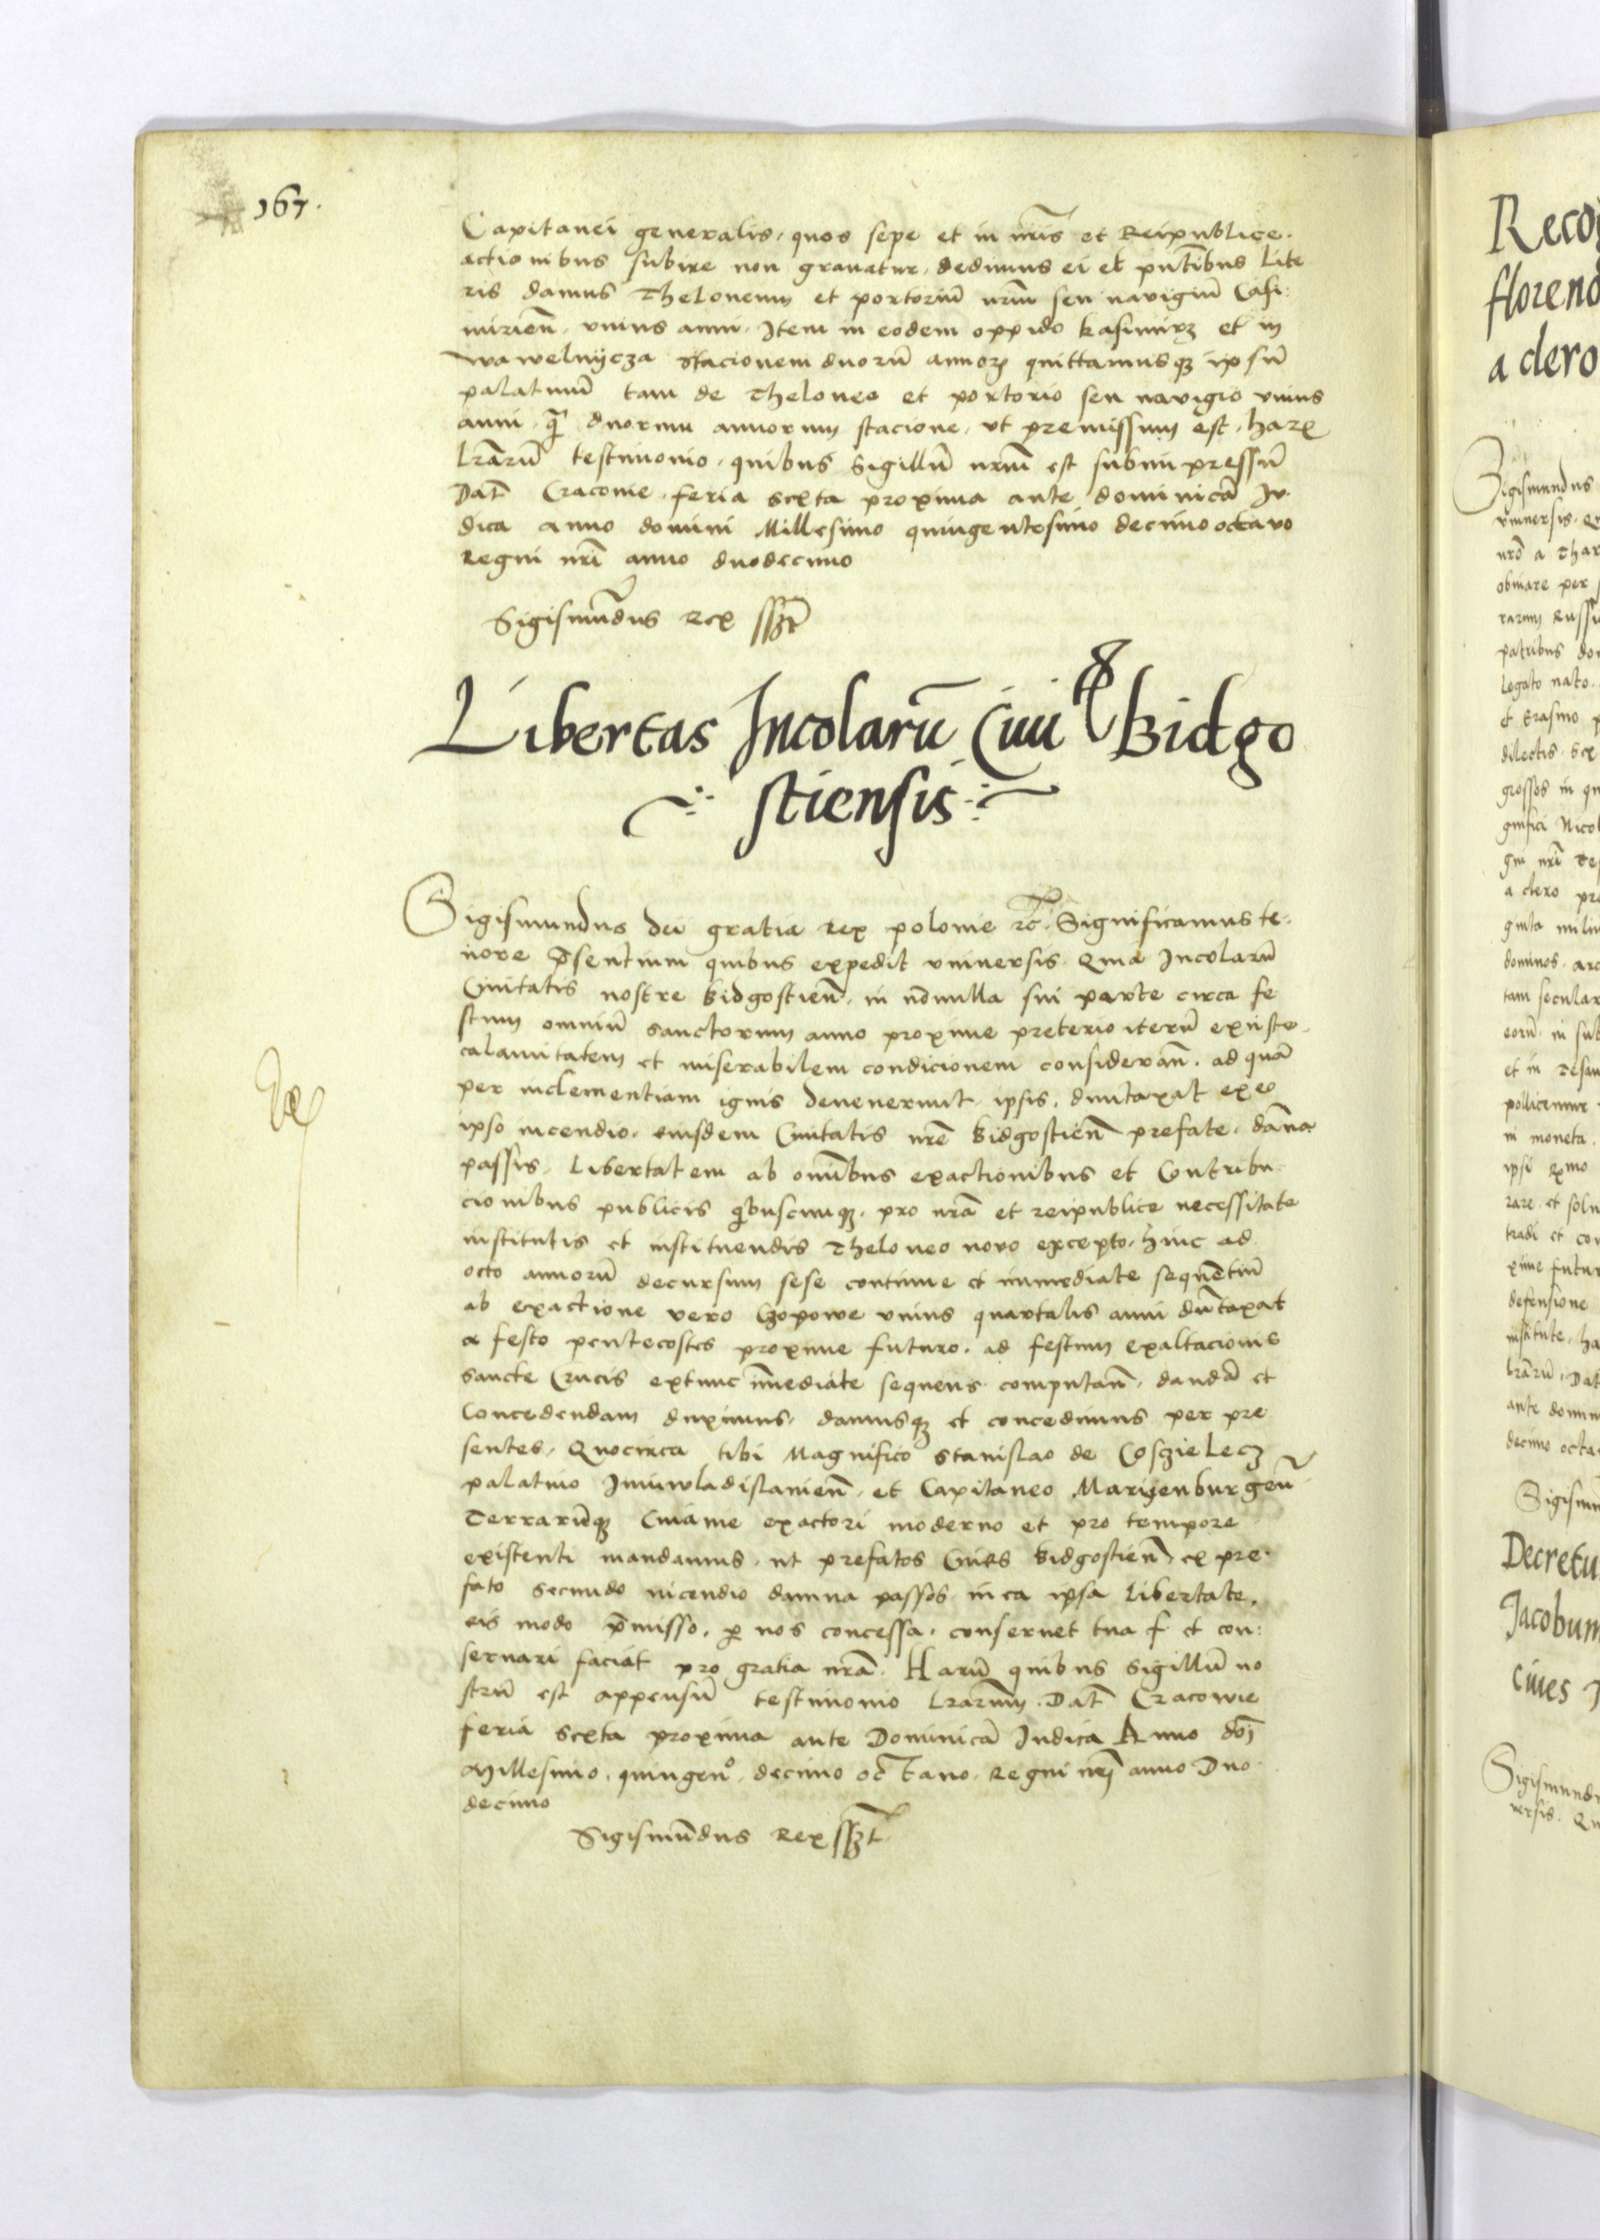 167.
Capitanei generalis, quos sepe et in nr̄is et Reipublice.
actionibus subire non grauatur, dedimus ei et pn̄tibus lite
ris damus Theloneum et portoriū nr̄m seu nauigiū Casi:
mirien̄, vnius anni, Item in eodem oppido Kasimirz et in
Wawelnijcza stacionem duorū annorꝫ quittamusqꝫ ipsū
palatinū tam de Theloneo et portorio seu nauigio vnius
anni, duorum annorum stacione, vt premissum est, harꝫ
lr̄arū testimonio, quibus Sigillū nr̄m est subimpressū
Dat̄ Cracouie, feria sexta proxima ante dominicā Iu
dica Anno domini Millesimo quingentesimo decimo octauo
Regni nr̄i anno duodecimo
Sigismūdus Rex sszt
Libertas Incolarū Ciui Bidgo
stiensis
Sigismundus dei gratia Rex polonie ꝛc̄. Significamus te,
nore p̄sentium quibus expedit vniuersis. Quia Incolarū
Ciuitatis nostre Bidgostien̄, in nōnulla sui parte circa fe
stum omniū sanctorum anno proxime preterio iterū exuste,
calamitatem et miserabilem condicionem consideran̄, ad quā
per inclementiam ignis deuenerunt, ipsis, duntaxat ex eo
ipso incendio, eiusdem Ciuitatis nr̄e Bidgostien̄ prefate, dan̄a
passis, Libertatem ab omībus exactionibus et Contribu
cionibus publicis qibuscumqꝫ, pro nr̄a et reipublice necessitate
institutis et instituendis Theloneo nouo excepto, hinc ad
octo annorū decursum sese continue et immediate sequentiū
ab exactione vero Czopowe vnius quartalis anni dūtaxat
a festo pentecostes proxime futuro, ad festum exaltacionis
sancte Crucis extunc īmediate sequens computan̄, dandā et
Concedendam duximus, damusqꝫ et concedimus per pre
sentes, Quocirca tibi Magnifico Stanislao de Cosczielecz
palatino Iuniwladislauien̄, et Capitaneo Marijenburgen̄
Terrarūqꝫ Cuiauie exactori moderno et pro tempore
existenti mandamus, ut prefatos Ciues Bidgostien̄, ex pre,
fato secundo incendio damna passos in ea ipsa Libertate,
eis modo p̄misso, ꝑ nos concessa, conseruet tua f. et con:
seruari faciat pro gratia nr̄a. Harū quibus Sigillū no
strū est appensū testimonio lr̄arum, Dat̄ Cracouie
feria sexta proxima ante Dominicā Iudica Anno do͞i
Millesimo, quingen°, decimo octauo, Regni nr̄i anno Duo
decimo
Sigismūdus Rex sszt
Recog
floreno
a clero
Sigismundus
vniuersis, Q
nr̄o a Thar
obuiare per
rarum Russi
patribus do
Legato nato.
et Erasmo p
dilectis, sex
grossos in qu
gnifici Nicol
gni nr̄i
a clero pre
ginta mil
dominos, arc
tam secular
eorū, in sub
et in Tesau
pollicemur
in moneta,
ipsi Rmo
rare, et solu
tradi et con
xime futur
defensione
institute, ha
lr̄arū, Dat
ante domin
decimo octa
Sigism
Decretu
Jacobum
ciues
Sigismundu
uersis. Qu